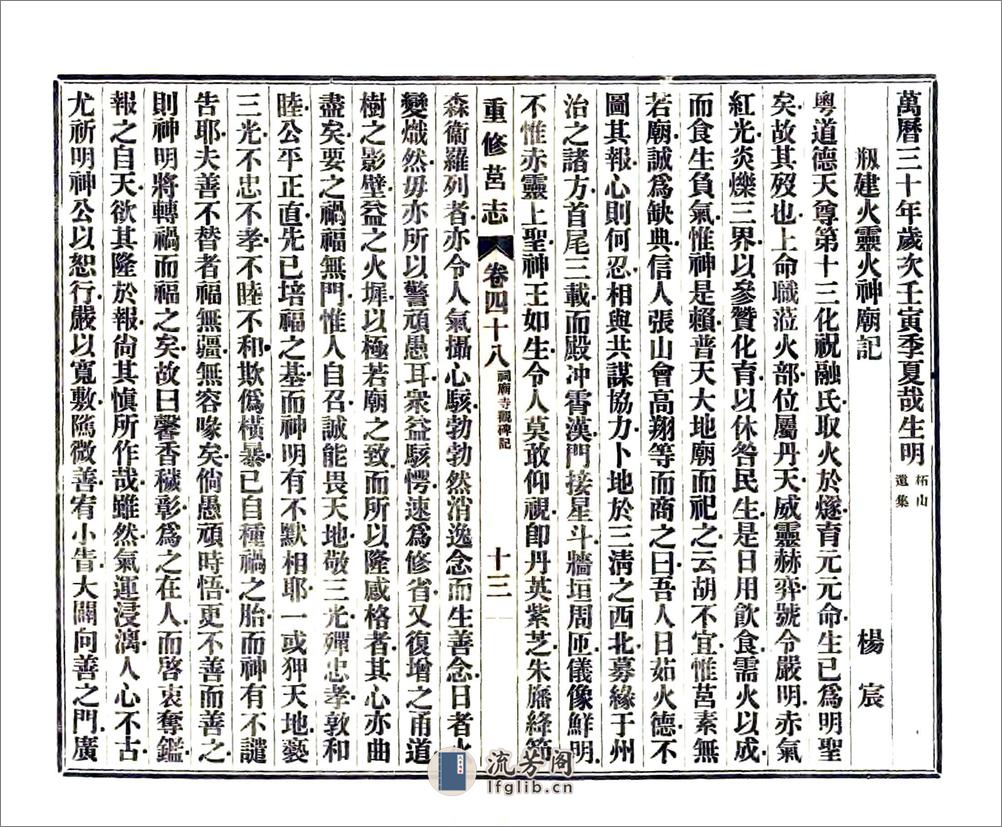 萬曆三十年歲次壬寅季夏哉生明 柘山遺集
剏建火靈火神廟記 楊宸
粵道德天尊第十三化祝融氏取火於燧育元元命生已爲明聖
矣故其歿也上命職蒞火部位屬丹天威靈赫弈號令嚴明赤氣
紅光炎爍三界以參贊化育以休咎民生是日用飲食需火以成
而食生負氣惟神是賴普天大地廟而祀之云胡不宜惟莒素無
若廟誠爲缺典信人張山會高翔等而商之曰吾人日茹火德不
圖其報心則何忍相與共謀協力卜地於三淸之西北募緣于州
治之諸方首尾三載而殿冲霄漢門接星斗牆垣周匝儀像鮮明
不惟赤靈上聖神王如生令人莫敢仰視卽丹英紫芝朱旛絳節
重修莒志 卷四十八 祠廟寺觀碑記 十三
森衞羅列者亦令人氣攝心駭勃勃然消逸念而生善念日者火
變熾然毋亦所以警頑愚耳衆益駭愕速爲修省又復增之甬道
樹之影壁益之火墀以極若廟之致而所以隆感格者其心亦曲
盡矣要之禍福無門惟人自召誠能畏天地敬三光殫忠孝敦和
睦公平正直先已培福之基而神明有不默相耶一或狎天地褻
三光不忠不孝不睦不和欺僞橫暴已自種禍之胎而神有不譴
吿耶夫善不替者福無疆無容喙矣倘愚頑時悟更不善而善之
則神明將轉禍而福之矣故曰馨香穢彰爲之在人而啓衷奪鑑
報之自天欲其隆於報尙其愼所作哉雖然氣運浸漓人心不古
尤祈明神公以恕行嚴以寬敷隲微善宥小眚大闢向善之門廣
流芳阁
lfglib.cn